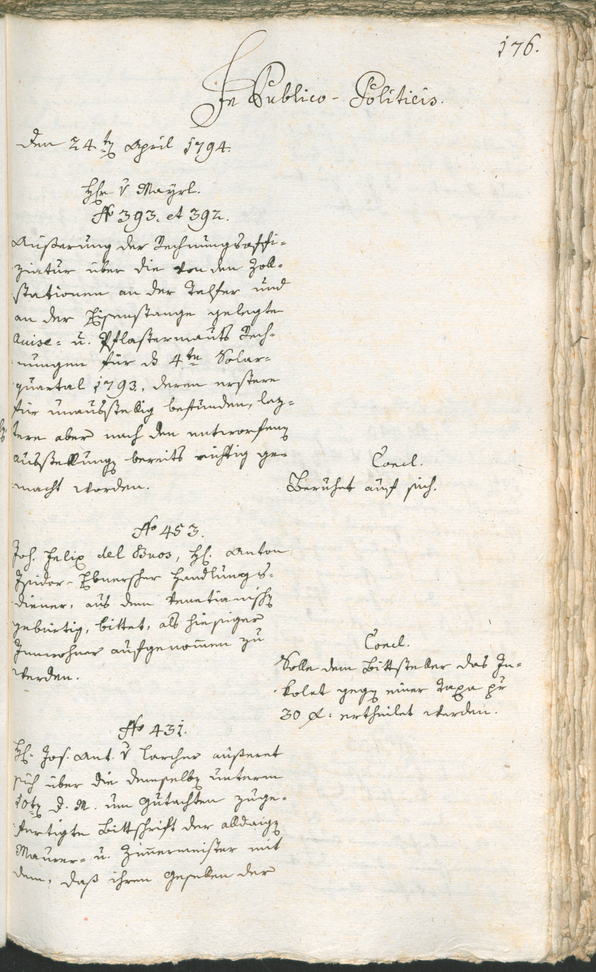 176.
In Publico-Politicis.
den 24.ten April 1794.
Hr. v Mayrl.
No 393. et 392.
Äußerung der Rechnungsoffi-
ziatur über die von den Zoll-
stationen an der Talfer und
an der Eisenstange gelegte
Accise- u. Pflastermauts Rech-
nungen für ds 4.te Solar-
quartal 1793, deren erstere
für unausstellig befunden, lez-
tere aber nach den entworfenen
Ausstellungen bereits richtig ge-
macht worden.
Concl.
Beruhet auf sich.
No 453.
Joh. Felix del Buos, H. Anton
Isidor-Ebnerscher Handlungs-
diener, aus dem Venetianischen
gebürtig, bittet, als hiesiger
Innwohner aufgenommen zu
werden.
Concl.
Solle dem Bittsteller das In-
kolat gegen einer Taxa pr
30 f: ertheilet werden.
No 431.
H. Jos. Ant. v Larcher äußeret
sich über die demselben unterm
10ten d. M. um Gutachten zuge-
fertigte Bittschrift der alldaigen
Maurer- u. Zimmermeister mit
dem, daß ihren Gesellen der